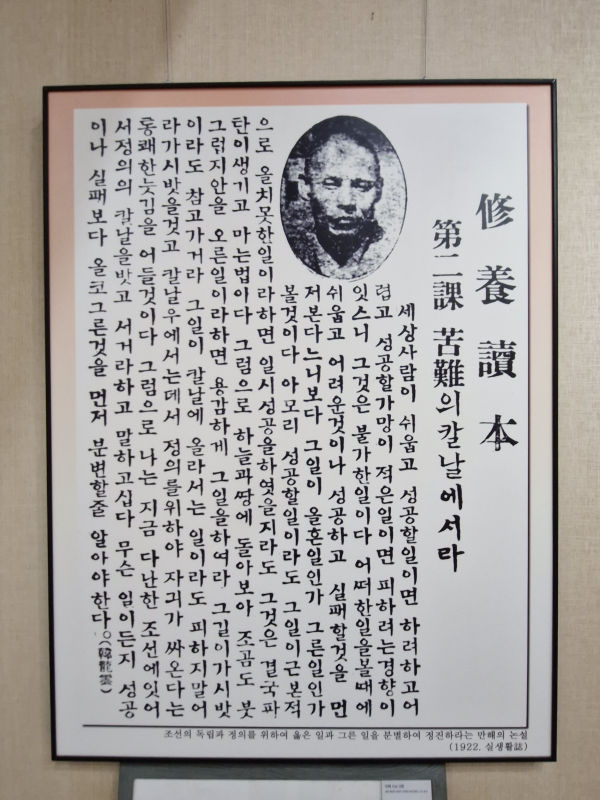 修養讀本
第二課 苦難의칼날에서라
세상사람이 쉬웁고 성공할일이면 하려하고어
렵고 성공할가망이 적은일이면 피하려는경향이
잇스니 그것은 불가한일이다 어떠한일을볼때에
쉬웁고 어려운것이나 성공하고 실패할것을 먼
저본다느니보다 그일이 올흔일인가 그른일인가
볼것이다 아모리 성공할일이라도 그일이근본적
으로 올치못한일이라하면 일시성공을하엿을지라도 그것은 결국파
탄이생기고 마는법이다 그럼으로 하늘과땅에 돌아보아 조곰도 붓
그럽지안을 오른일이라하면 용감하게 그일을하여라 그길이가시밧
이라도 참고가거라 그일이 칼날에 올라서는 일이라도 피하지말어
라가시밧을것고 칼날우에서는데서 정의를위하야 자긔가 싸온다는
통쾌한늣김을 어들것이다 그럼으로 나는 지금 다난한 조선에잇어
서정의의 칼날을밧고 서거라하고 말하고십다 무슨 일이든지 성공
이나 실패보다 올코그른것을 먼저 분변할줄 알아야한다。(韓龍雲)
조선의 독립과 정의를 위하여 옳은 일과 그른 일을 분별하여 정진하라는 만해의 논설
(1922. 실생활誌)